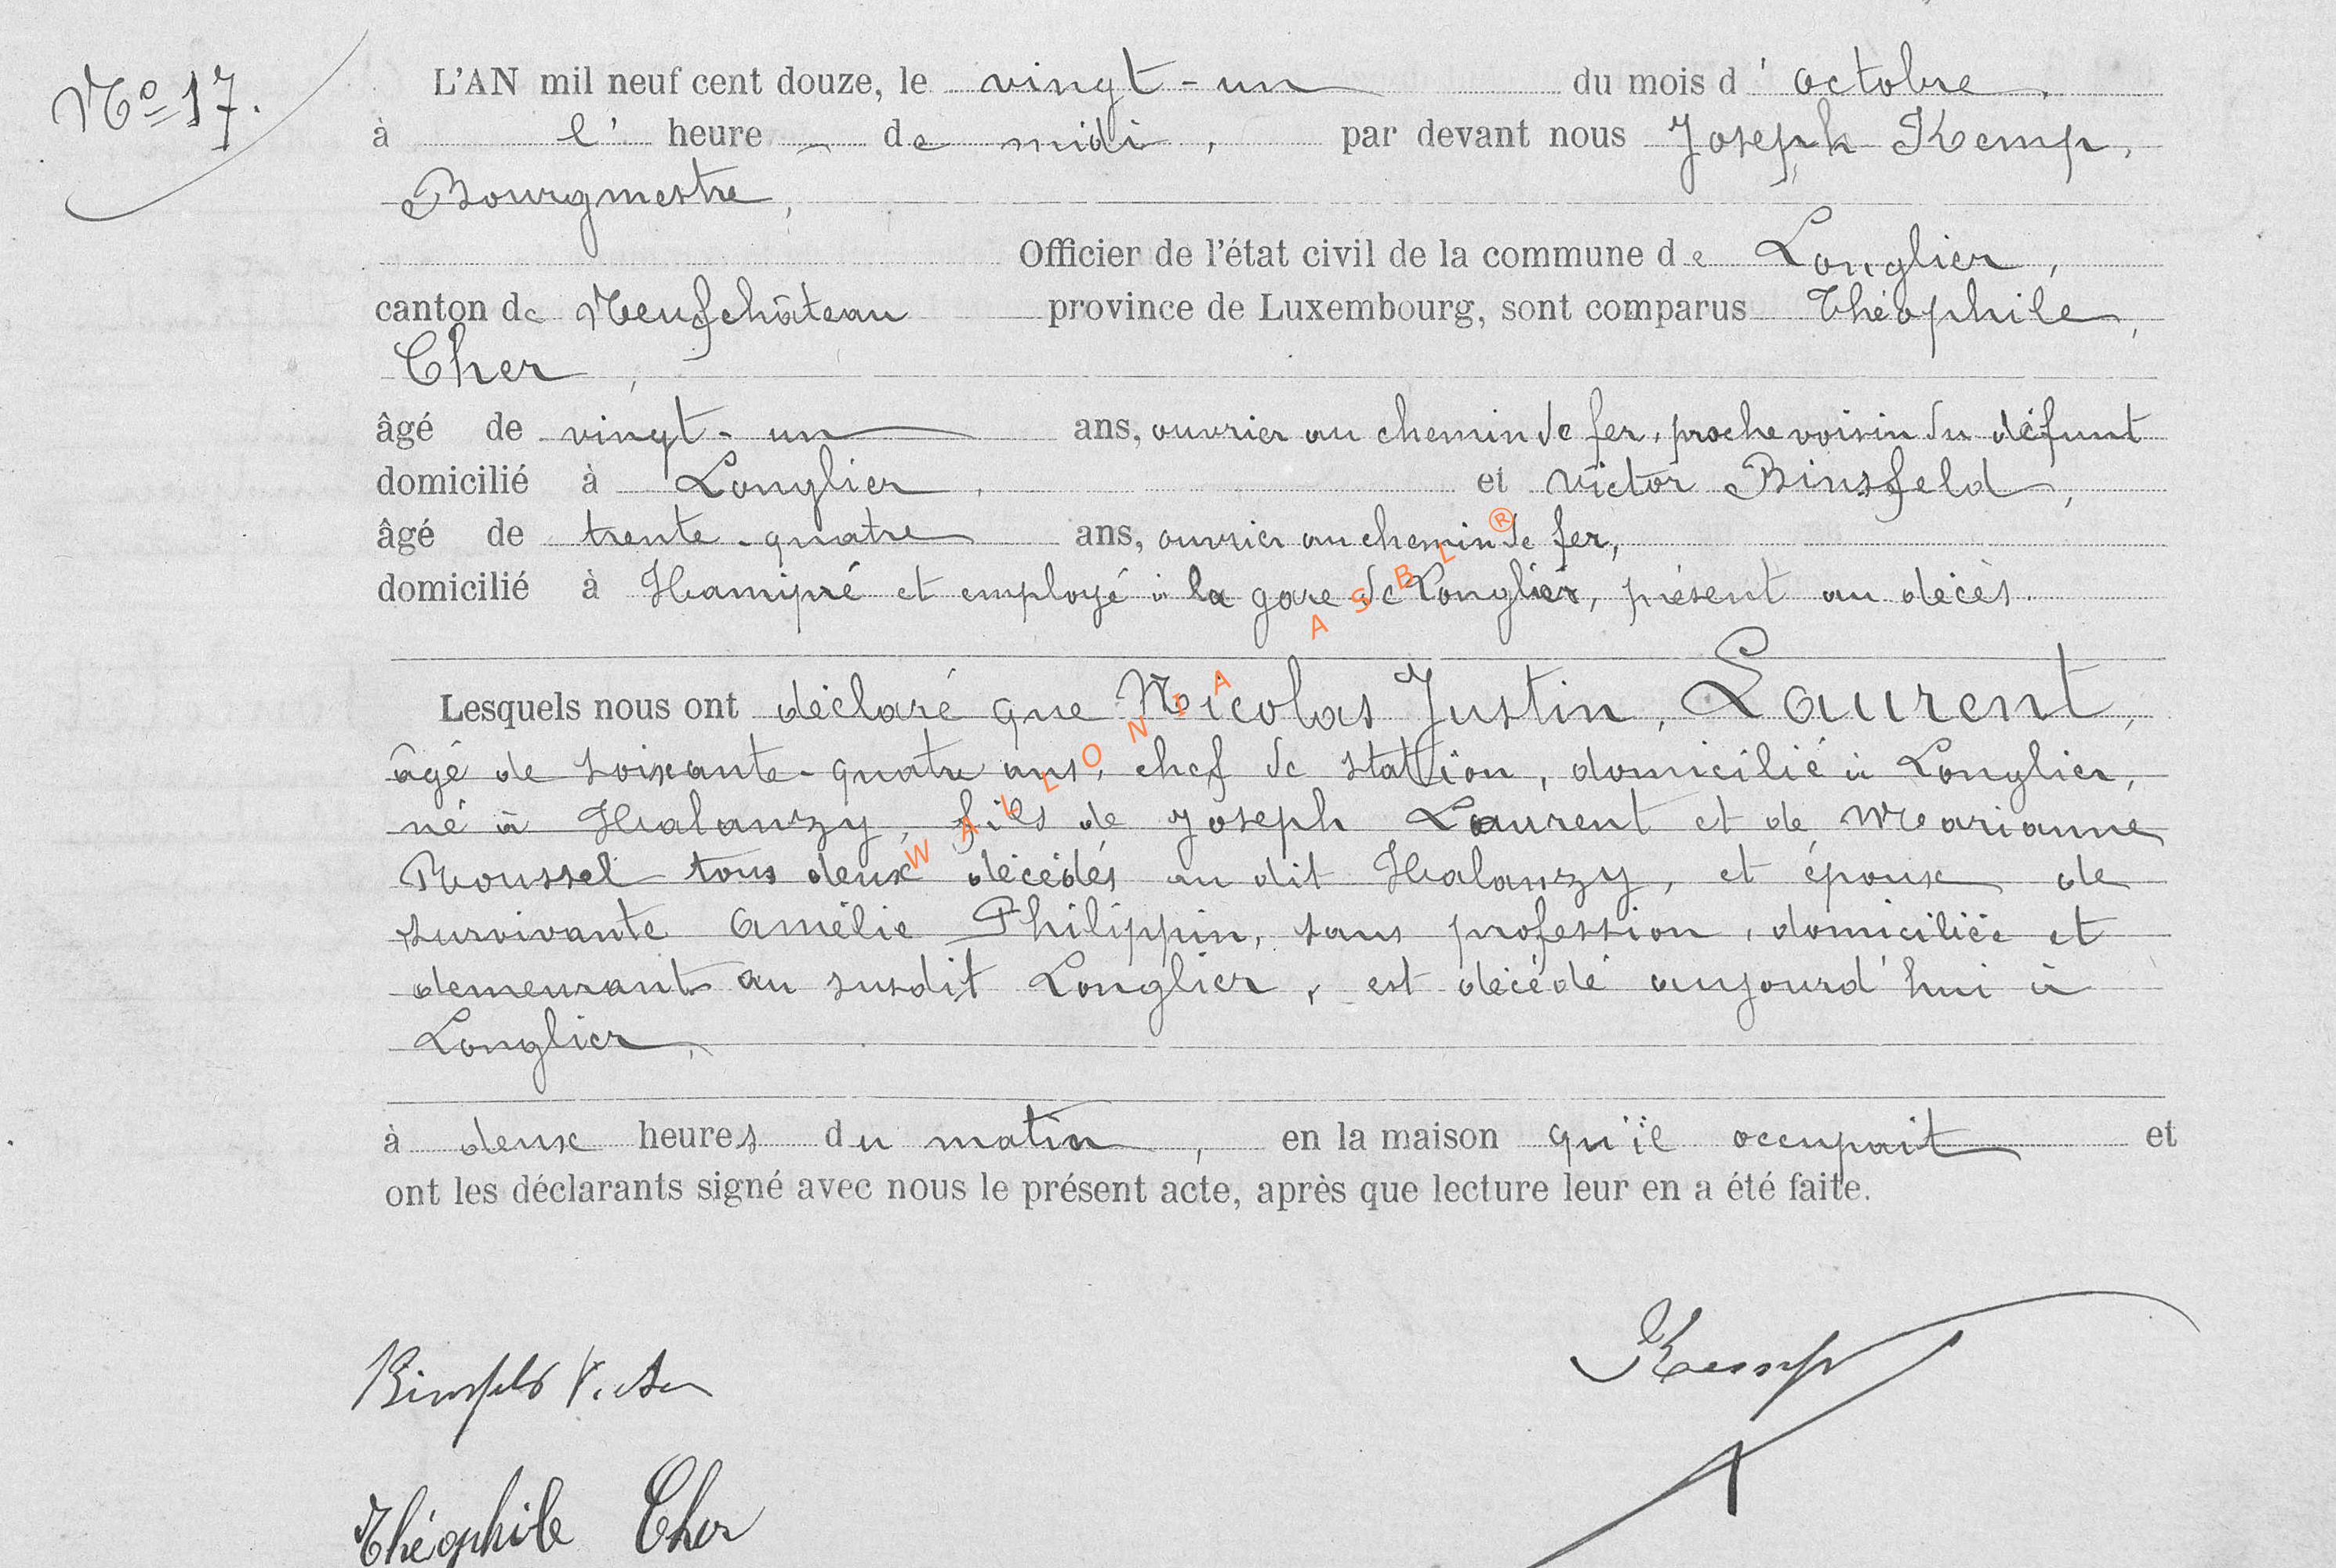 Nº 17.
L'AN mil neuf cent douze, le vingt-un du mois d'octobre.
à l'heure - de midi, par devant nous Joseph Kemp,
Bourgmestre,
Officier de l'état civil de la commune de Longlier,
canton de Neufchâteau province de Luxembourg, sont comparus Théophile,
Cher,
âgé de vingt-un ans, ouvrier au chemin de fer, proche voisin du défunt
domicilié à Longlier, et Victor Binsfeld,
âgé de trente-quatre ans, ouvrier au chemin de fer,
domicilié à Hamipré et employé à la gare de Longlier, présent au décès.
Lesquels nous ont déclaré que Nicolas Justin, Laurent,
âgé de soixante-quatre ans, chef de station, domicilié à Longlier,
né à Halanzy, fils de Joseph Laurent et de Marianne
Roussel tous deux décédés au dit Halanzy, et époux de
survivante Amélie Philippin, sans profession, domiciliée et
demeurant au susdit Longlier, est décédé aujourd'hui à
Longlier,
à deux heures du matin, en la maison qu'il occupait et
ont les déclarants signé avec nous le présent acte, après que lecture leur en a été faite.
Kemp
Binsfeld Victor
Théophile Cher
WALLONIA ASBL ®